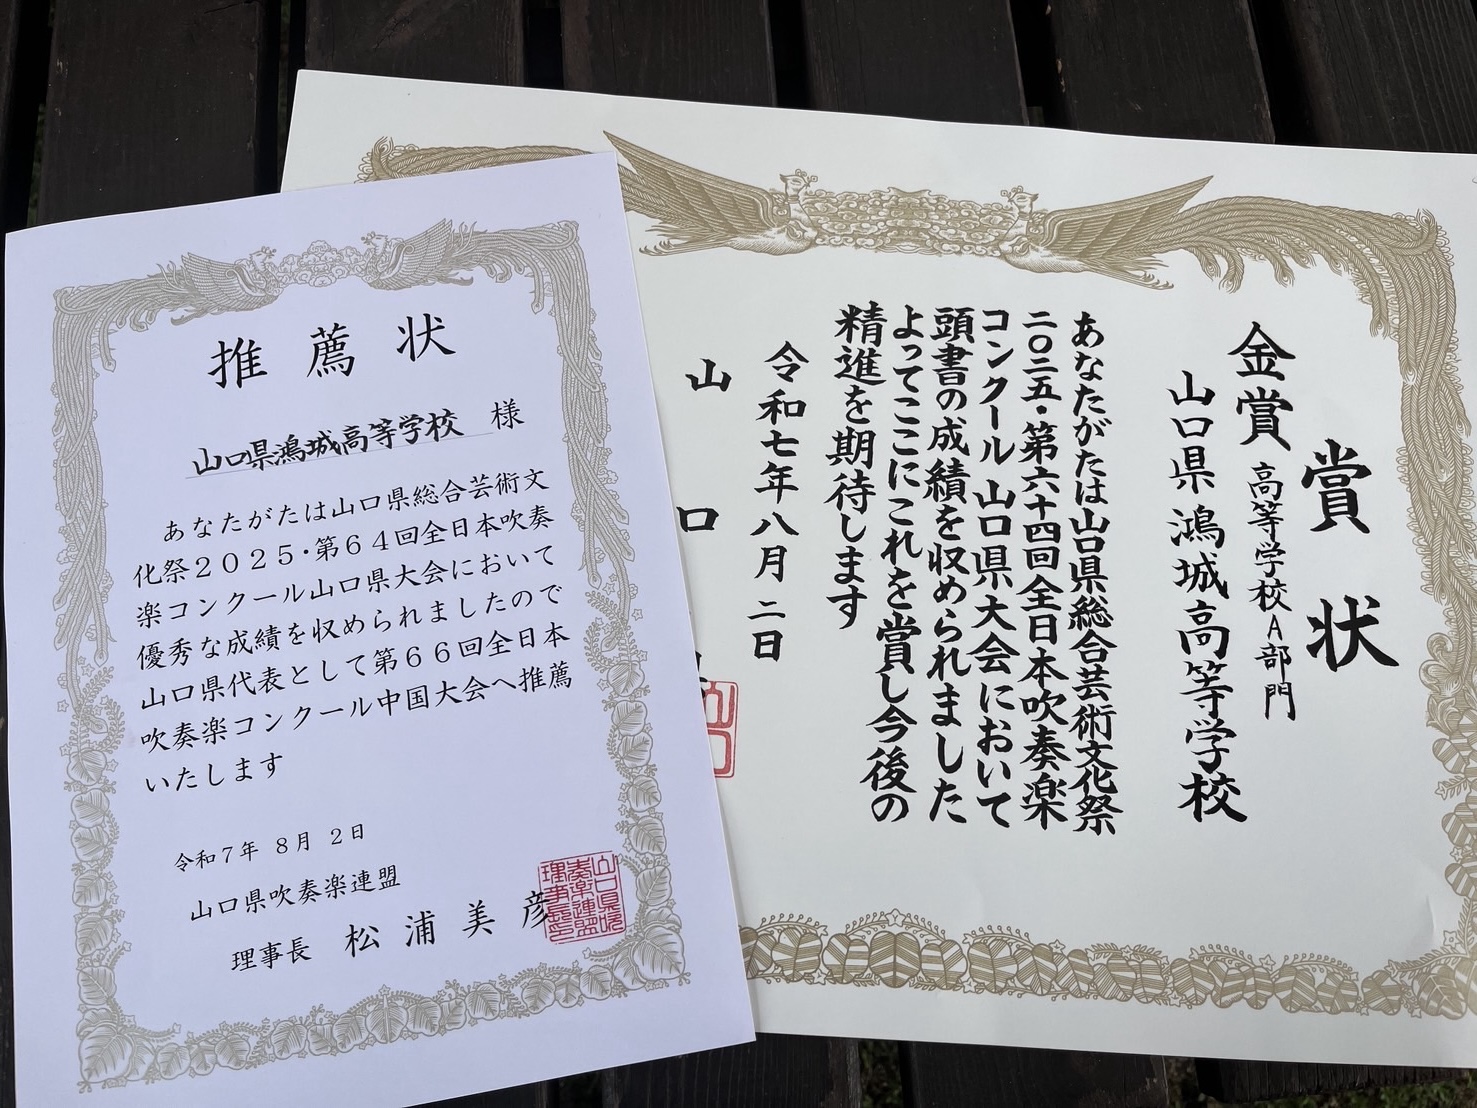 推薦状
山口県鴻城高等学校 様
あなたがたは山口県総合芸術文
化祭2025・第64回全日本吹奏
楽コンクール山口県大会において
優秀な成績を収められましたので
山口県代表として第66回全日本
吹奏楽コンクール中国大会へ推薦
いたします
令和7年 8月 2日
山口県吹奏楽連盟
理事長 松浦美彦
山口県吹
奏楽連盟
理事長印
賞状
金賞 高等学校A部門
山口県鴻城高等学校
あなたがたは山口県総合芸術文化祭
二〇二五・第六十四回全日本吹奏楽
コンクール山口県大会において
頭書の成績を収められました
よってここにこれを賞し今後の
精進を期待します
令和七年八月二日
山口